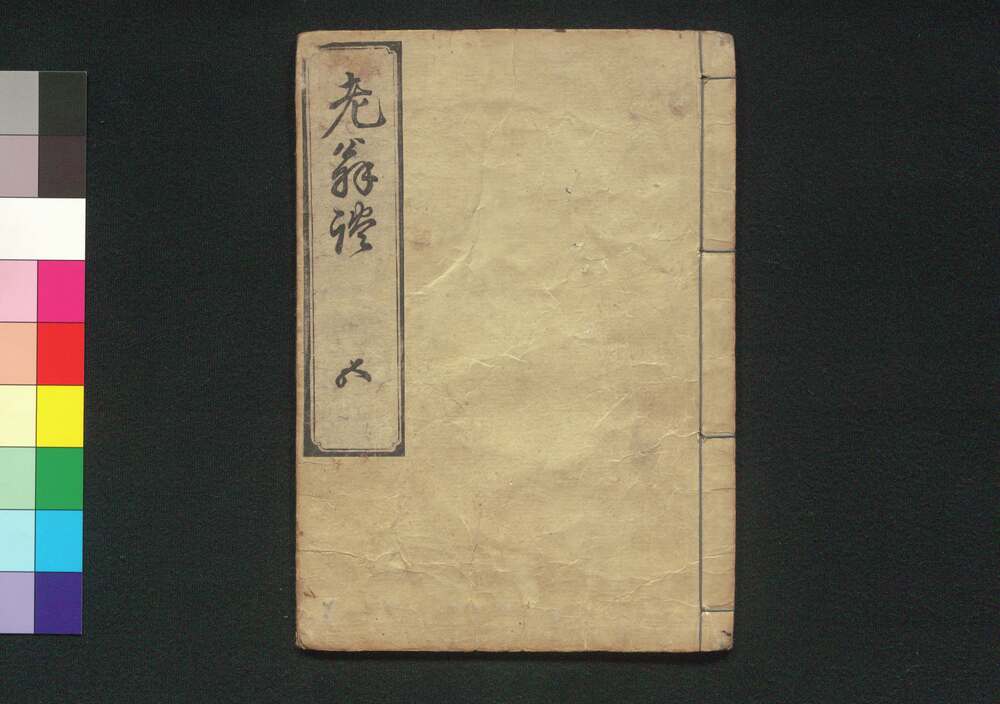 老翁談
六